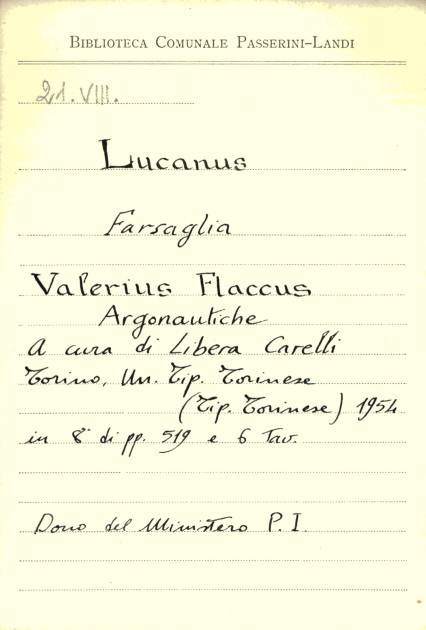 BIBLIOTECA COMUNALE PASSERINI-LANDI
21.VIII.
Lucanus
Farsaglia
Valerius Flaccus
Argonautiche
A cura di Libera Carelli
Torino, Un. Tip. Torinese
(Tip. Torinese) 1954
in 8° di pp. 519 e 6 Tav.
Dono del Ministero P. I.